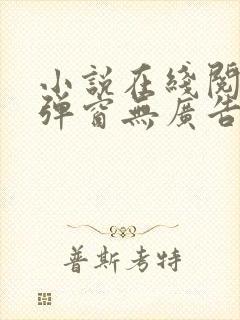 小説在綫閱
彈窗無廣告
普斯考特